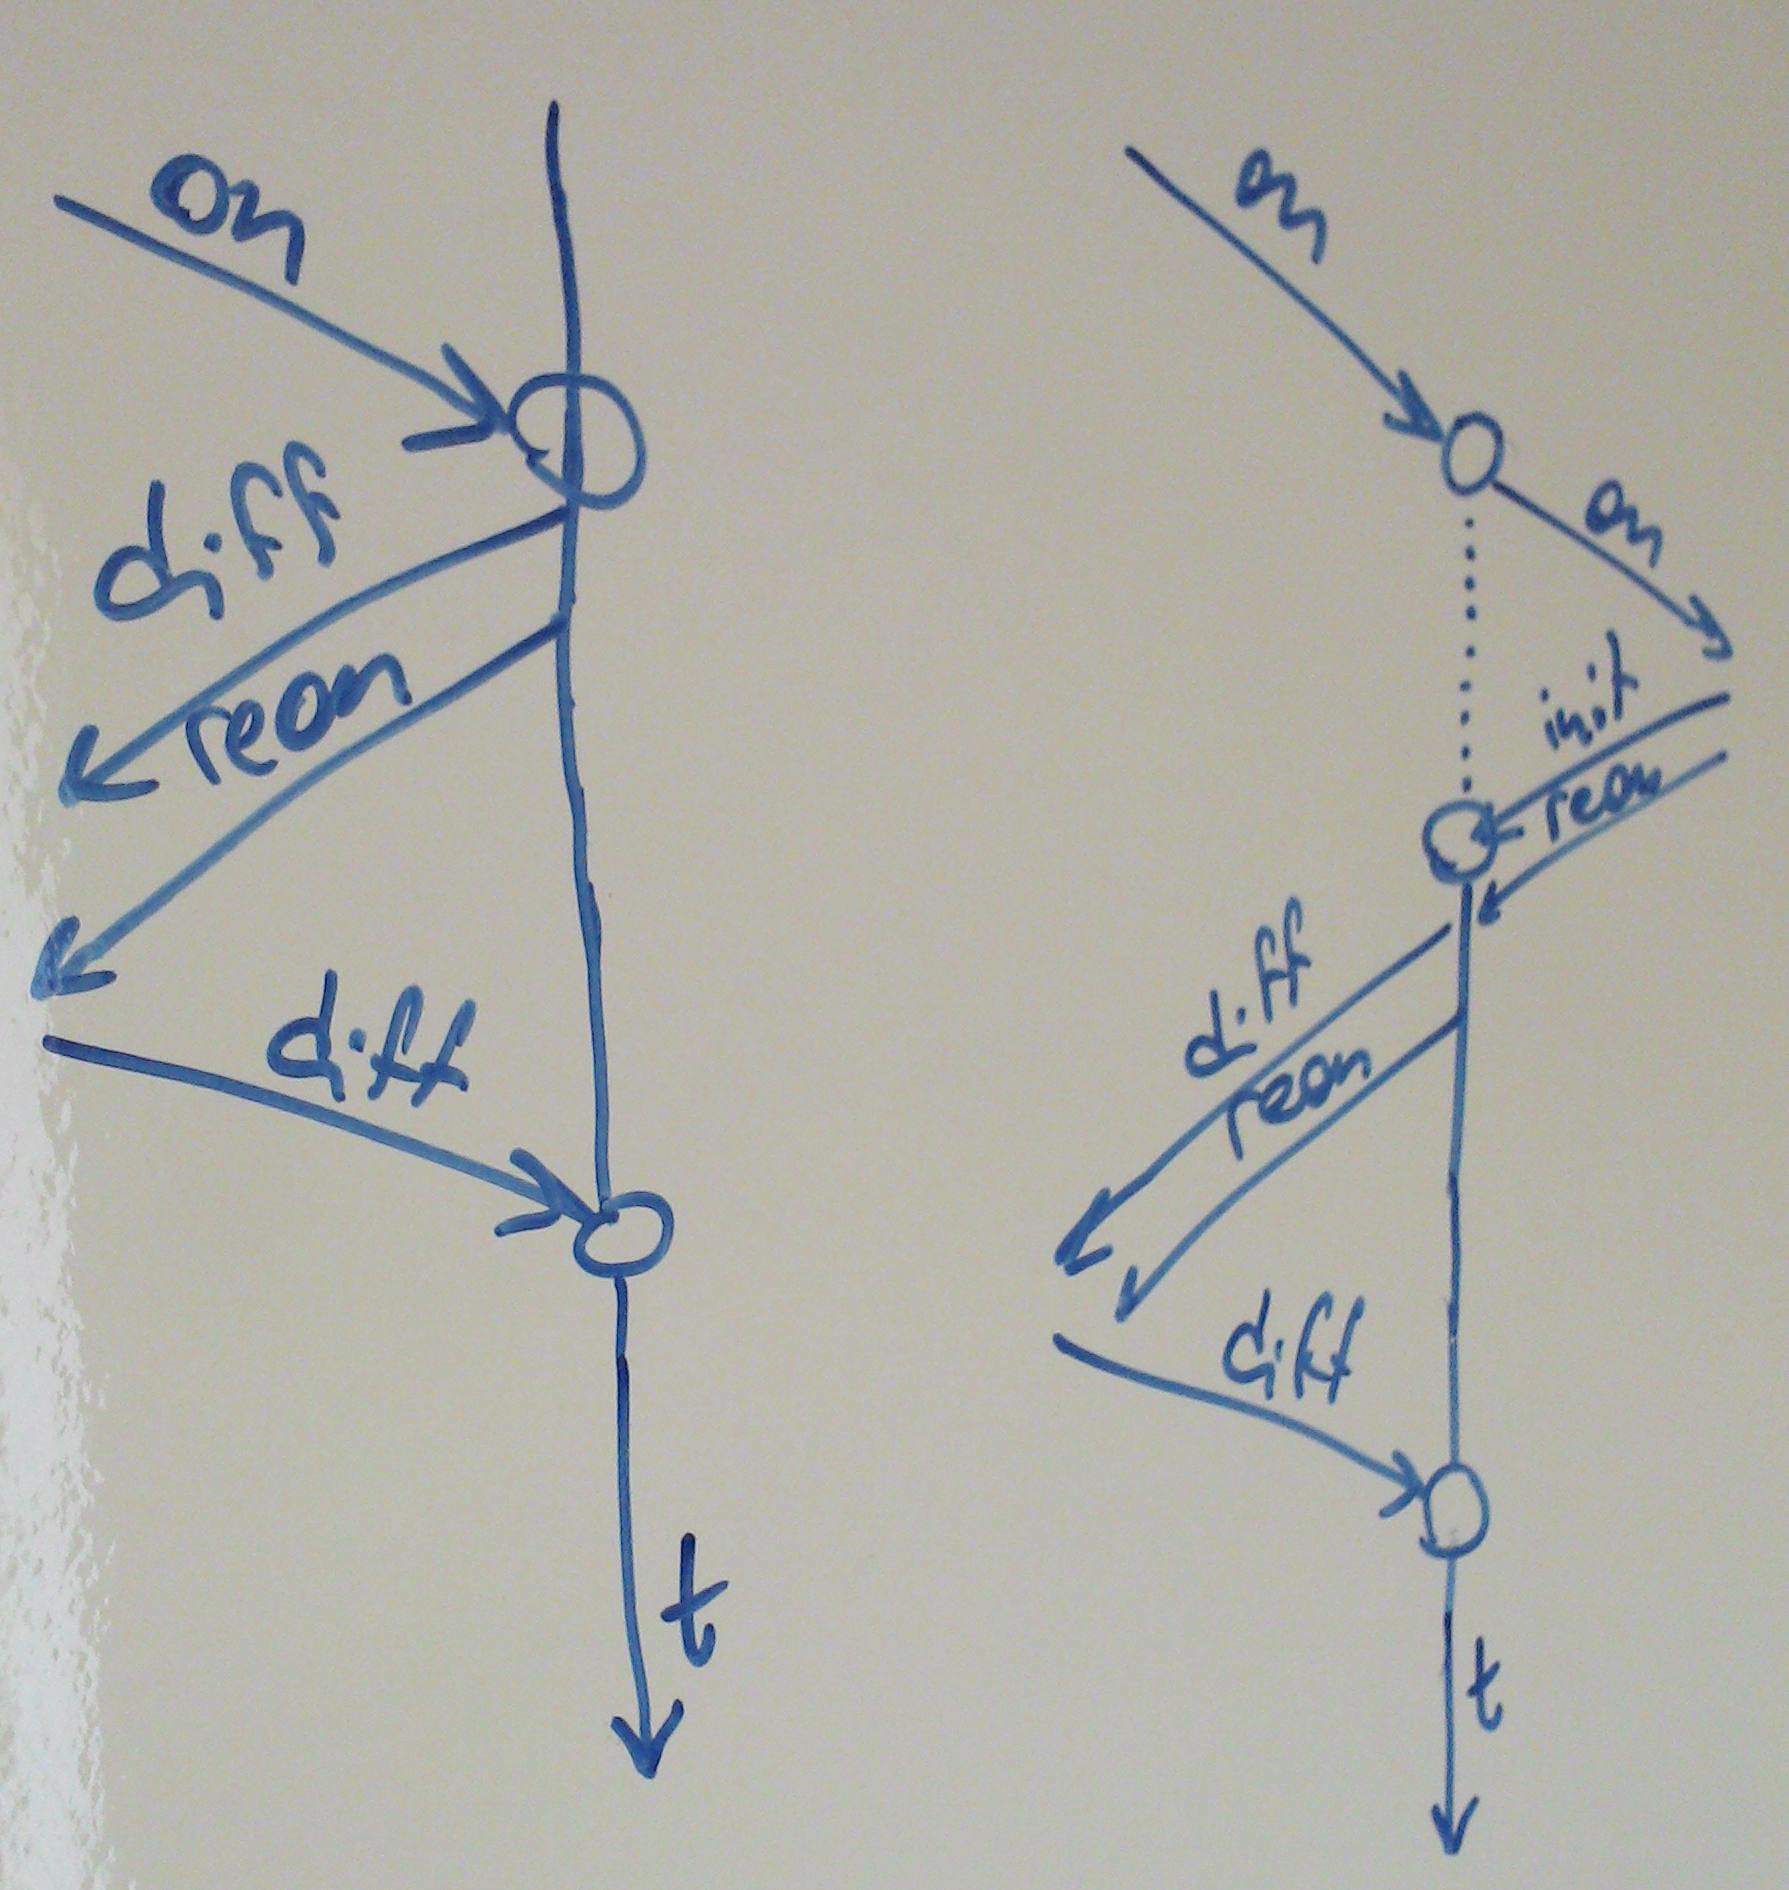 on
diff
reon
diff
t
on
on
init
reon
diff
reon
diff
t